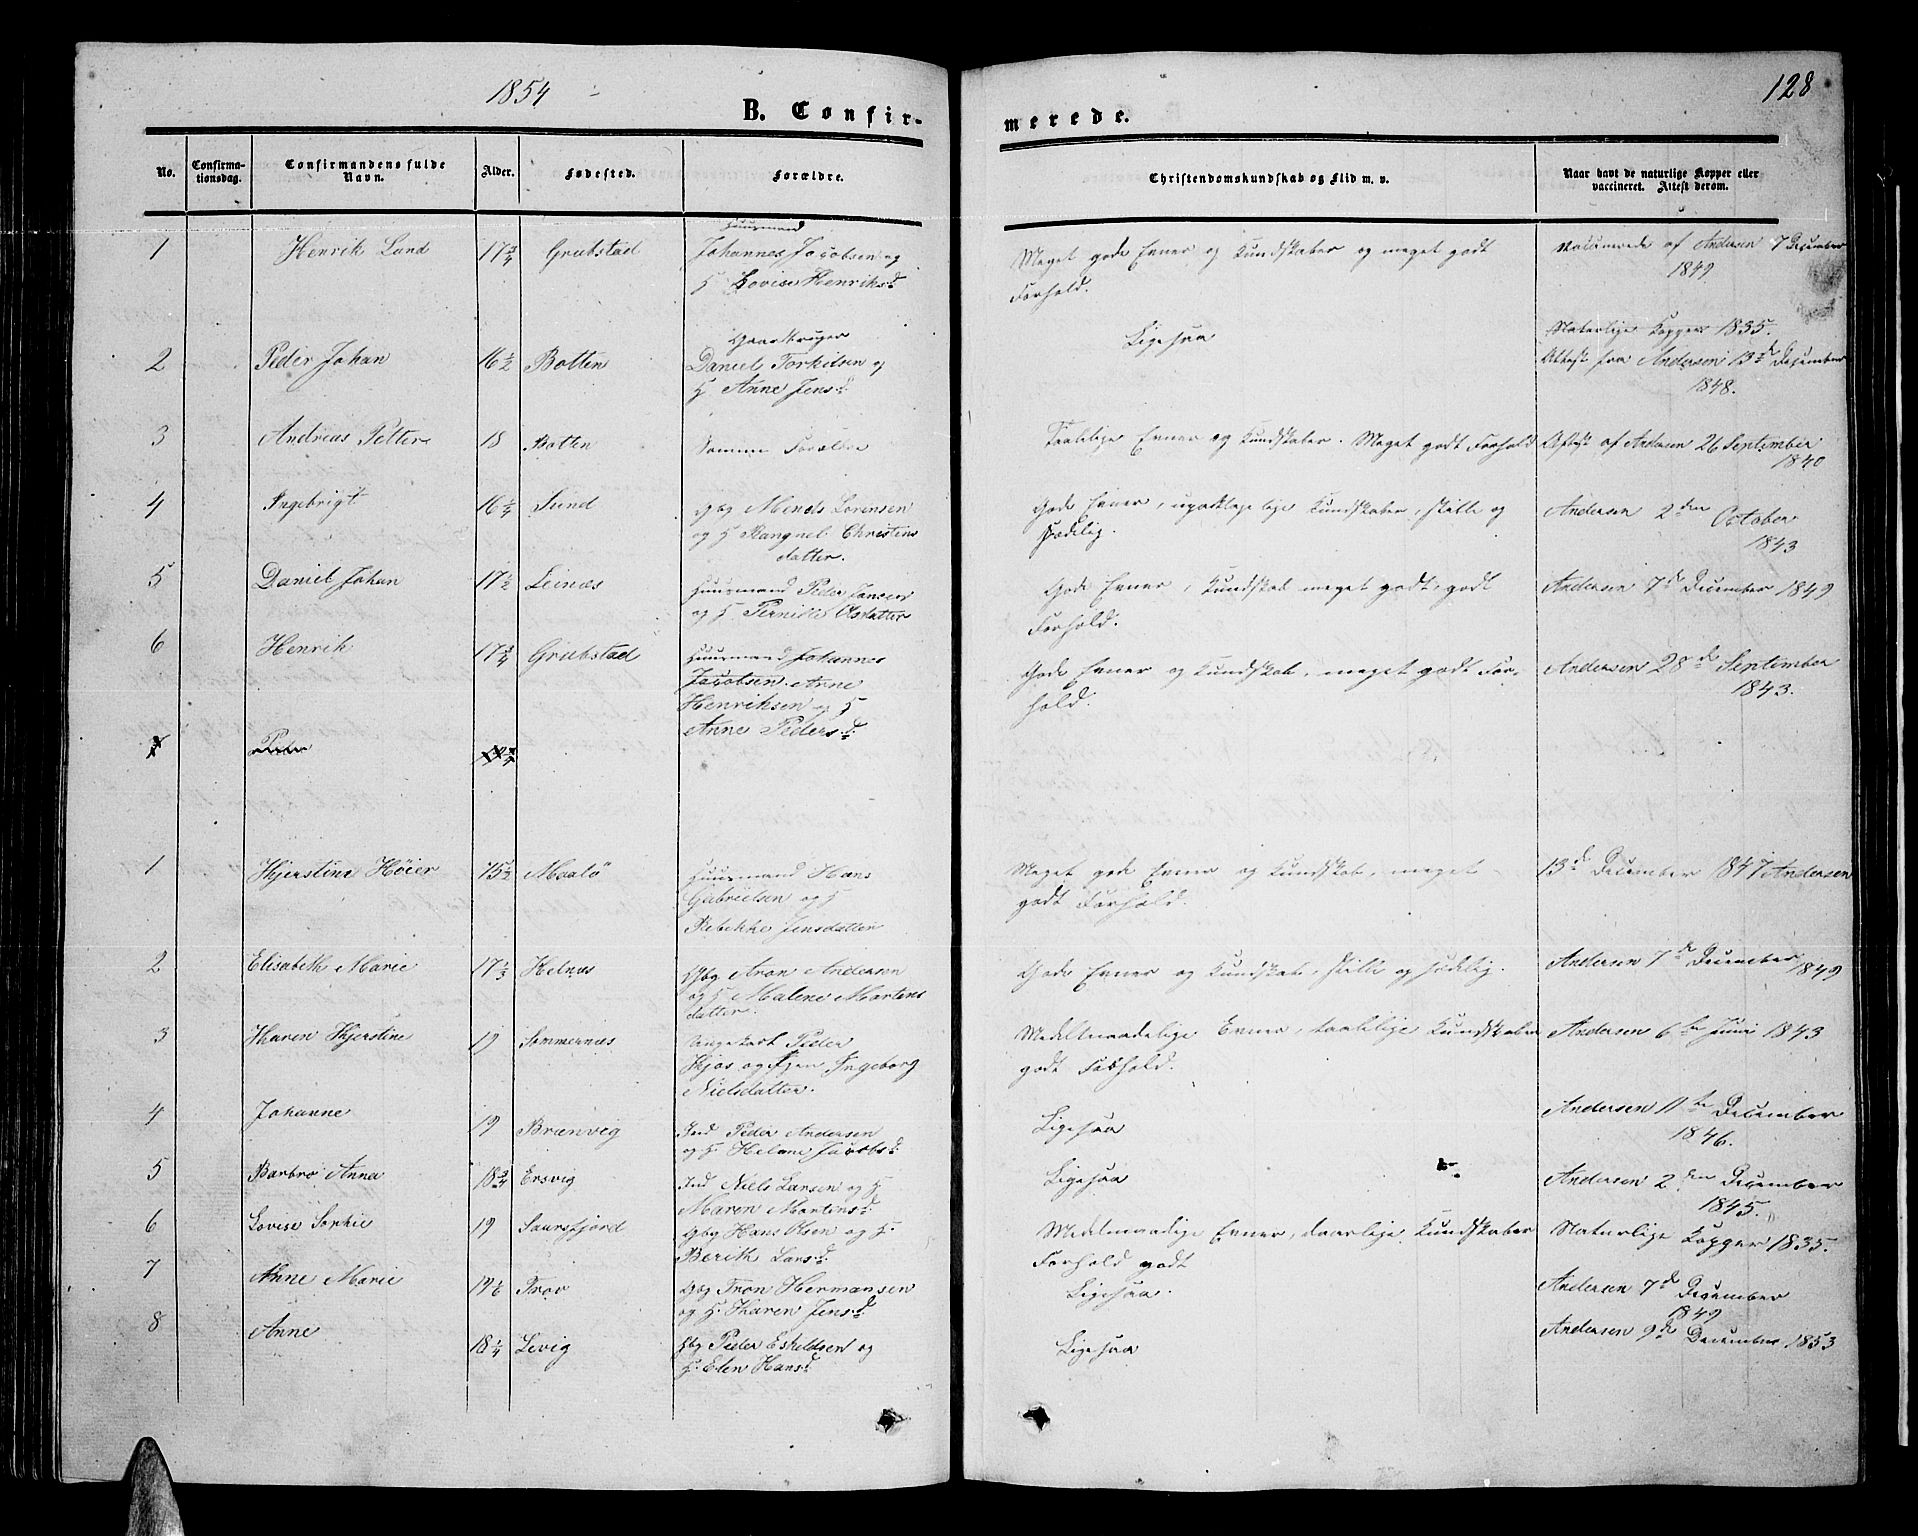 1854
128
B. Confir-
merede.
No.
Confirma-
tionsdag.
Confirmandens fulde
Navn.
Alder.
Fødested.
Forældre.
Christendomskundskab og Flid m. v.
Naar havt de naturlige Kopper eller
vaccineret. Attest derom.
1 Henrik Lund 17 3/4 Grubstad
Huusmand
Johannes Jacobsen og
H Lovise Henriksd
Meget gode Evner og Kundskaber og meget godt
Forhold.
Vaccinerede af Andersen 7 December
1849
2 Peder Johan 16 1/2 Botten
Gaardbruger
Daniel Torkilsen og
H Anne Jensd
Ligesaa
Naturlige Kopper 1835.
Attest fra Andersen 13d December
1848.
3 Andreas Petter 18 Botten
Samme Forældre
Taalelige Evner og Kundskaber. Meget godt Forhold
Attest af Andersen 26 September
1840
4 Ingebrigt 16 1/4 Sund
Gbg Mends Lorensen
og H Rangnel Christins
datter.
Gode Evner, Kundskaber, stille og
sædelig.
Andersen 2den October
1843
5 Daniel Johan 17 1/2 Leinæs
Huusmand Peder Jansen
og H. Pernille Olsdatter
Gode Evner, Kundskab meget godt, godt
Forhold.
Andersen 7d December 1849
6 Henrik 17 3/4 Grubstad
Huusmand Johannes
Jacobsen. Anne
Henriksen og H
Anne Pedersd
Gode Evner og Kundskab, meget godt For-
hold.
Andersen 28d September
1843.
Peder
1 Kjerstine Høier 15 1/2 Maalö
Huusmand Hans
Gabrielsen og H
Rebekke Jensdatter
Meget gode Evner og Kundskab, meget
godt Forhold.
13d December 1847 Andersen
2 Elisabeth Marie 17 1/3 Helnæs
Gbg Aron Andersen
og H Malene Martens
datter.
Gode Evner og Kundskab, stille og sædelig.
Andersen 7d December
1849
3 Karen Kjerstine 19 Sommernæs
Peder
Kjos og Pgen Ingeborg
Nielsdatter.
Medelmaadelige Evner, taalelige Kundskaber
godt Forhold.
Andersen 6te Juni 1843
4 Johanne 19 Brænvig
Ind Peder Andersen
og H Helene Jacobsd
Ligesaa
Andersen 11te December
1846.
5 Barbro Anna 18 3/4 Ersvig
Ind Niels Larsen og H
Maren Martensd
Ligesaa
Andersen 2den December
1845.
6 Lovise Sophie 19 Saursfjord
Gbg Hans Olsen og H.
Berith Larsd
Medelmaadige Evner, daarlige Kundskaber
Forhold godt
Naturlige Kopper 1835.
7 Anne Marie 19 1/2 Trov
Gbg Tron Hermansen
og H. Karen Jensd
Ligesaa.
Andersen 7d December
1849
8 Anne 18 1/4 Levig
Gbg Peder Eskildsen og
H. Elen Hansd
Ligesaa
Andersen 9d December 1853